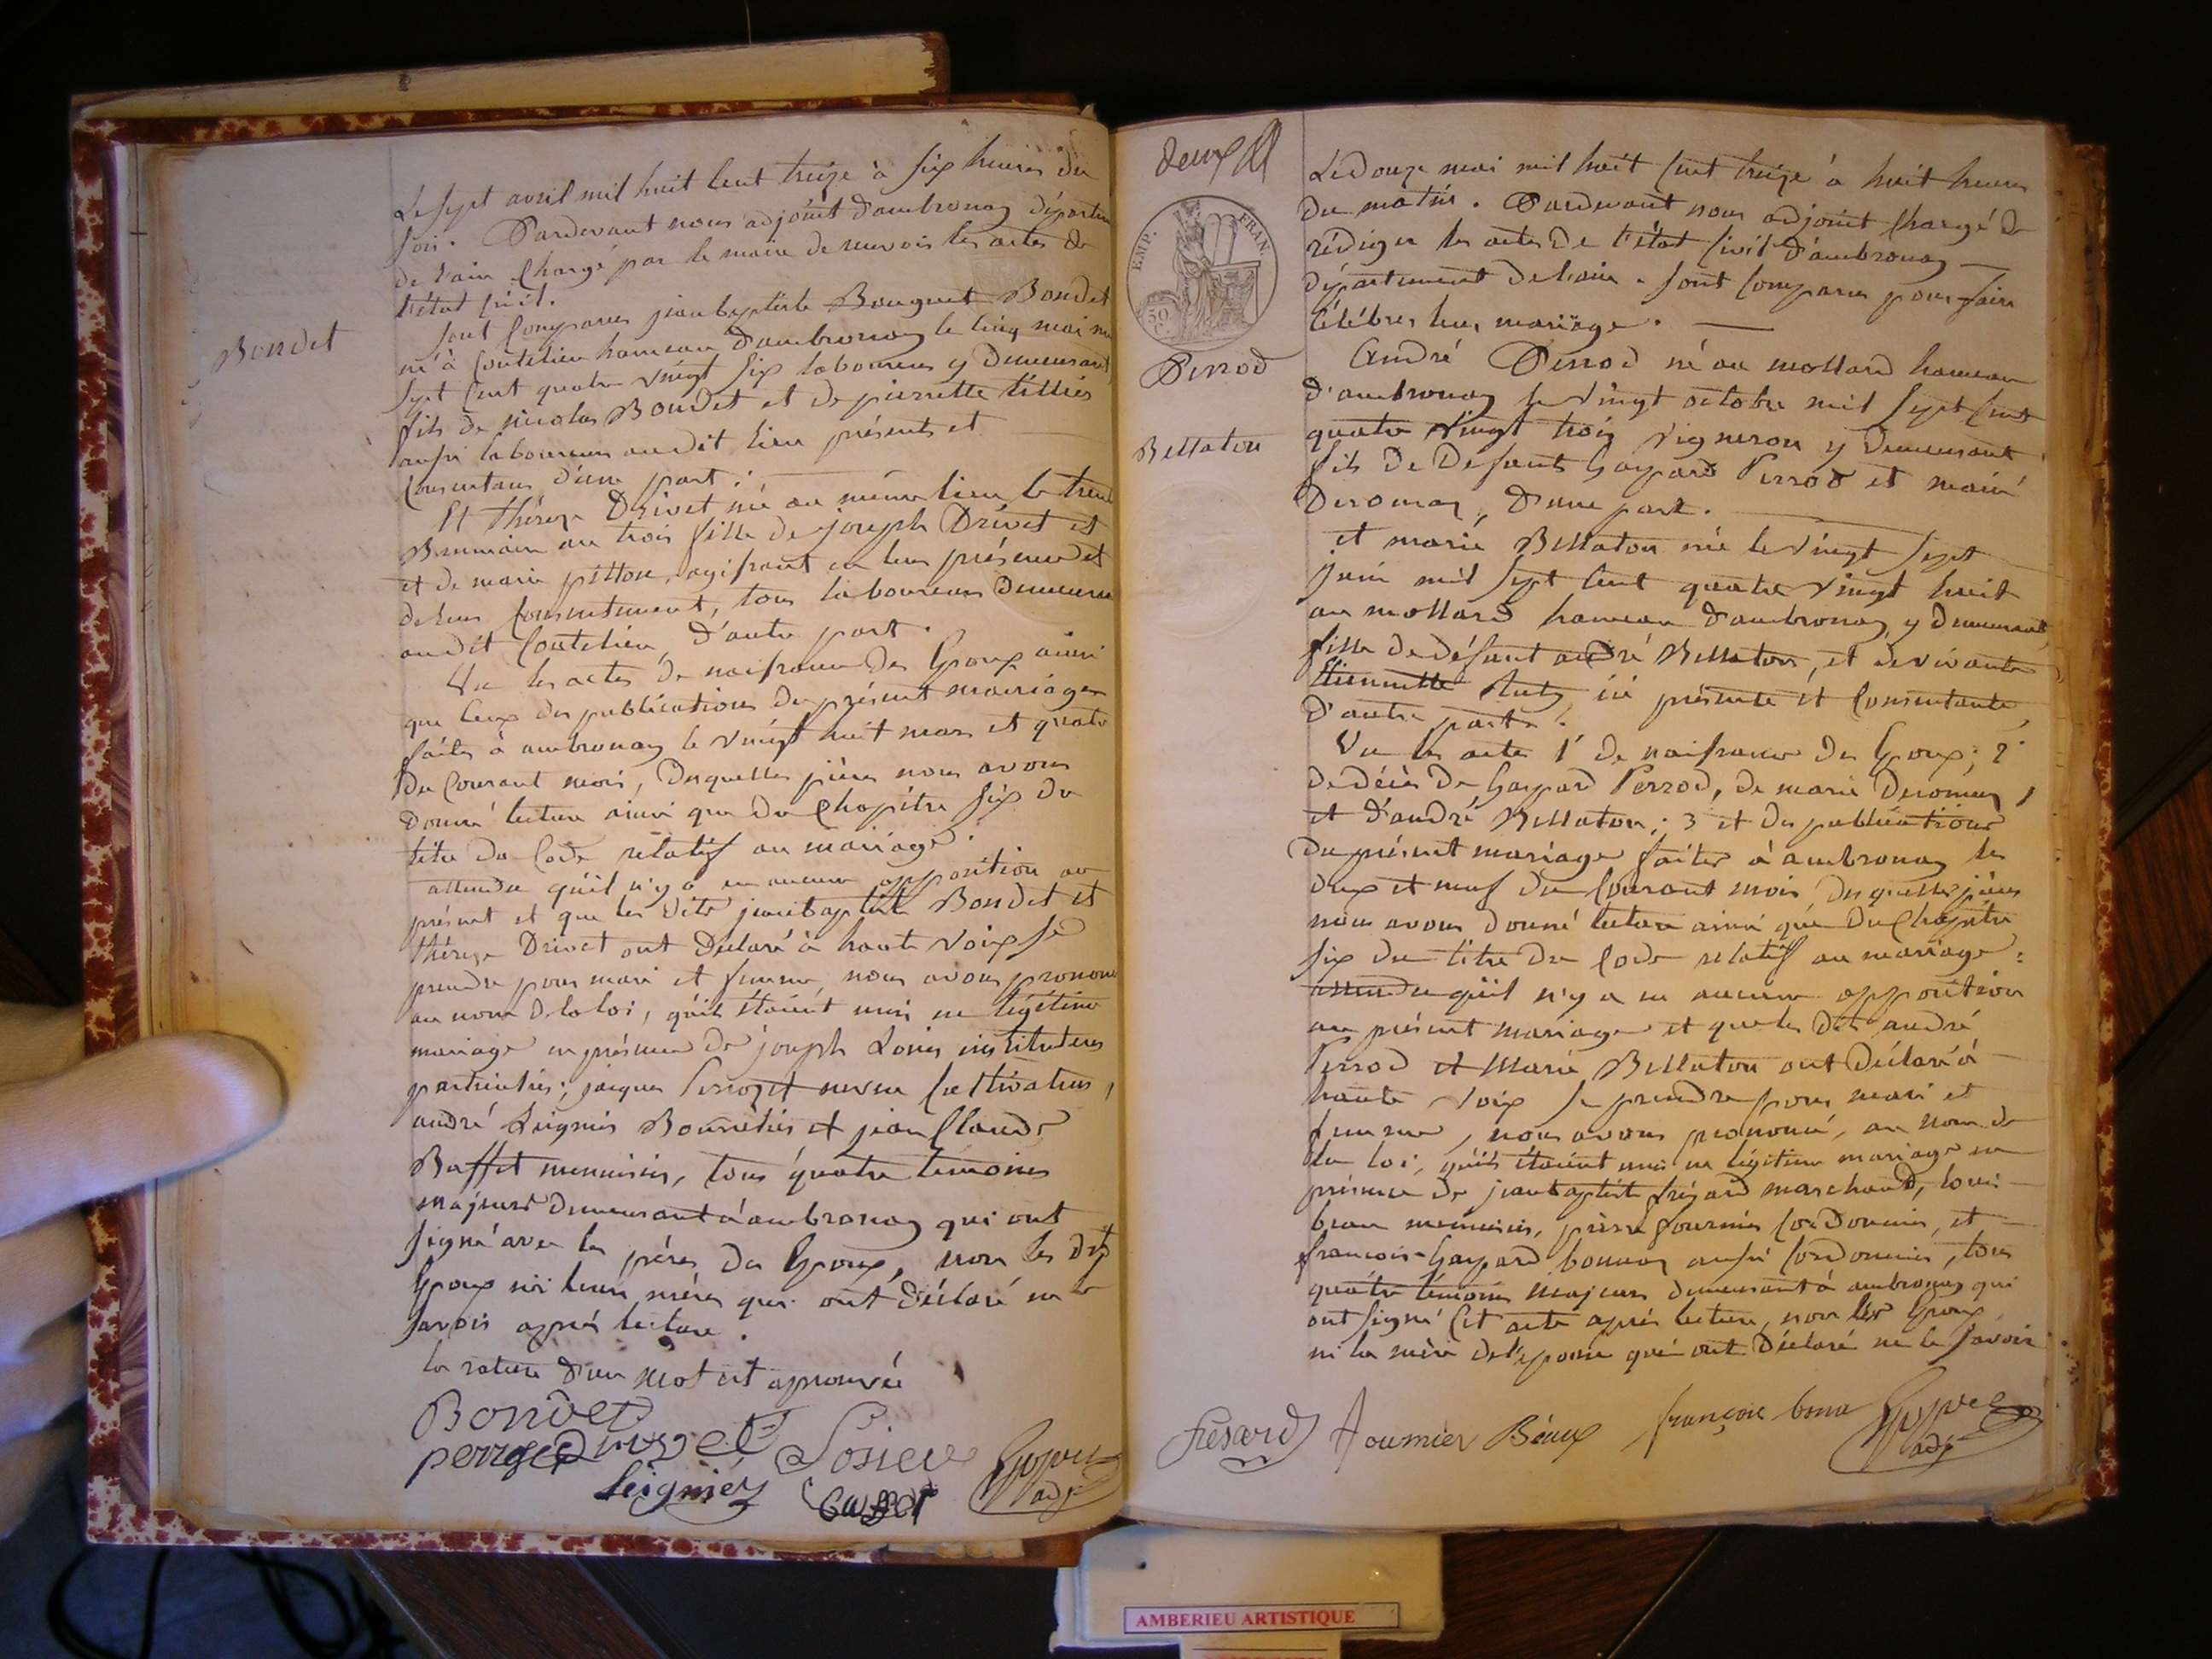 Bondet
Le sept avril mil huit cent treize à six heures du
soir. Pardevant nous adjoint d'ambronay départem
de l'ain chargé par le maire de recevoir les actes de
l'état civil.
sont comparus jean baptiste Bouquet Bondet
né à coutelieu hameau d'ambronay le cinq mai mil
sept cent quatre vingt six laboureur y demeurant,
fils de nicolas Bondet et de pierrette
aussi laboureurs audit lieu présents et
consentans d'une part.
Et thérèze Drivet née au même lieu le
Brumaire an trois fille de joseph Drivet et
et de marie pitton, agissant en leur présence et
de leur consentement, tous laboureurs
audit coutelieu, d'autre part.
Vu les actes de naissance des Epoux ainsi
que ceux des publications du présent mariage
faites à ambronay le vingt huit mars et quatre
du courant mois, desquelles pièces nous avons
donné lecture ainsi que du chapitre six du
titre du code relatif au mariage.
attendu qu'il n'y a eu aucune opposition au
présent et que les dits jean baptiste Bondet et
thérèze Drivet ont déclaré à haute voix se
prendre pour mari et femme, nous avons prononcé
au nom de la loi, qu'ils étaient unis en légitime
mariage en présence de joseph instituteur
particulier; jaques neveu cultivateur,
andré Leignier Bourrelier et jean Claude
Buffet menuisier, tous quatre témoins
majeurs demeurant à ambronay qui ont
signé avec les pères des Epoux, non les dits
Epoux ni leurs mères qui ont déclaré ne le
savoir après lecture.
la rature d'un mot est aprouvée
Bondet
Leignier
Buffet
adj
deux
EMP. FRAN.
50 C.
Perrod
Bellaton
Le douze mai mil huit cent treize à huit heures
du matin. Pardevant nous adjoint chargé de
rédiger les actes de l'état civil d'ambronay
département de l'ain. sont comparus pour faire
célébrer leur mariage.
André Perrod né au mollard hameau
d'ambronay le vingt octobre mil sept cent
quatre vingt trois vigneron y demeurant
fils de défunts Gaspard Perrod et marie
Deromay, d'une part.
et marie Bellaton née le vingt sept
juin mil sept cent quatre vingt huit
au mollard hameau d'ambronay y demeurant
fille de défunt andré Bellaton, et de vivante
Etiennette ici présente et consentante
d'autre part.
Vu les actes 1° de naissance des Epoux; 2°
de décès de Gaspard Perrod, de marie Deromay,
et d'andré Bellaton; 3 et des publications
du présent mariage faites à ambronay les
deux et neuf du courant mois desquelles pièces
nous avons donné lecture ainsi que du chapitre
six du titre du code relatif au mariage:
attendu qu'il n'y a eu aucune opposition
au présent mariage et que les dits andré
Perrod et Marie Bellaton ont déclaré à
haute voix se prendre pour mari et
femme, nous avons prononcé, au nom de
la loi, qu'ils étaient unis en légitime mariage en
présence de jean baptiste frésard marchand, louis
beau menuisier, pierre fournier cordonnier, et
françois-Gaspard bonnaz aussi cordonnier, tous
quatre témoins majeurs demeurant à ambronay qui
ont signé cet acte après lecture, non les Epoux
ni la mère de l'épouse qui ont déclaré ne le savoir
frésard fournier Béaux françois bona
adj
AMBERIEU ARTISTIQUE